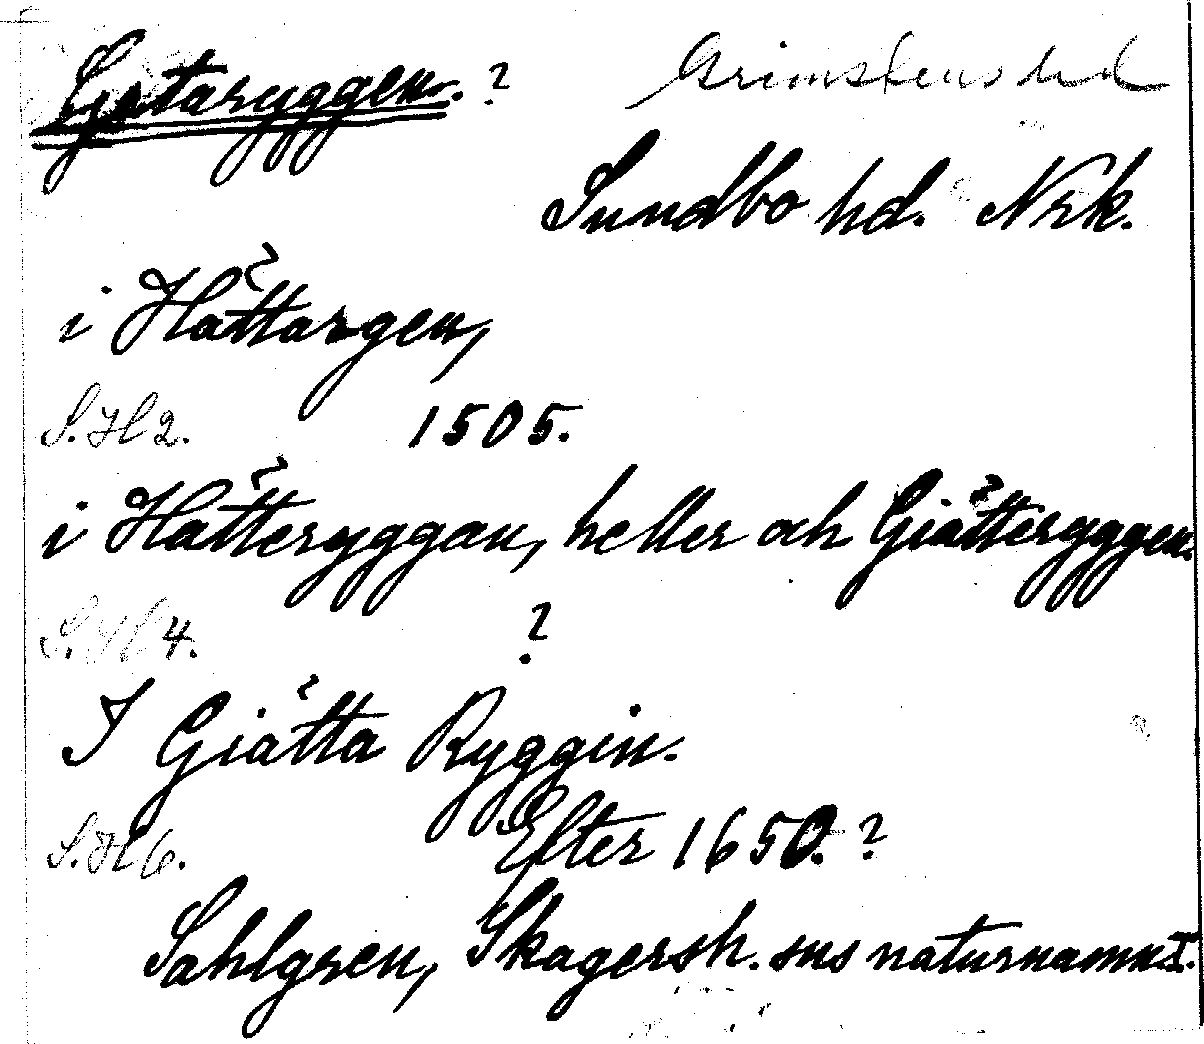 Gätaryggen. ?
Grimstens hd
Sundbo hd. Nrk.
i Hättargen,
S.H 2. 1505.
i Hätteryggan, heller och Giätteryggen.
S.H 4. ?
I Giätta Ryggin.
S.H 6. Efter 1650. ?
Sahlgren, Skagersh. sns naturnamn I.